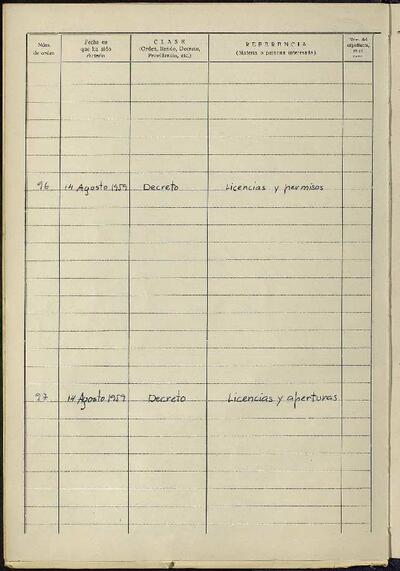 Núm. de orden
Fecha en que ha sido dictado
CLASE (Orden, Bando, Decreto, Providencia, etc.)
REFERENCIA (Materia o persona interesada)
Núm. del expediente,
96 14 Agosto 1959 Decreto Licencias y permisos
97 14 Agosto 1959 Decreto Licencias y aperturas